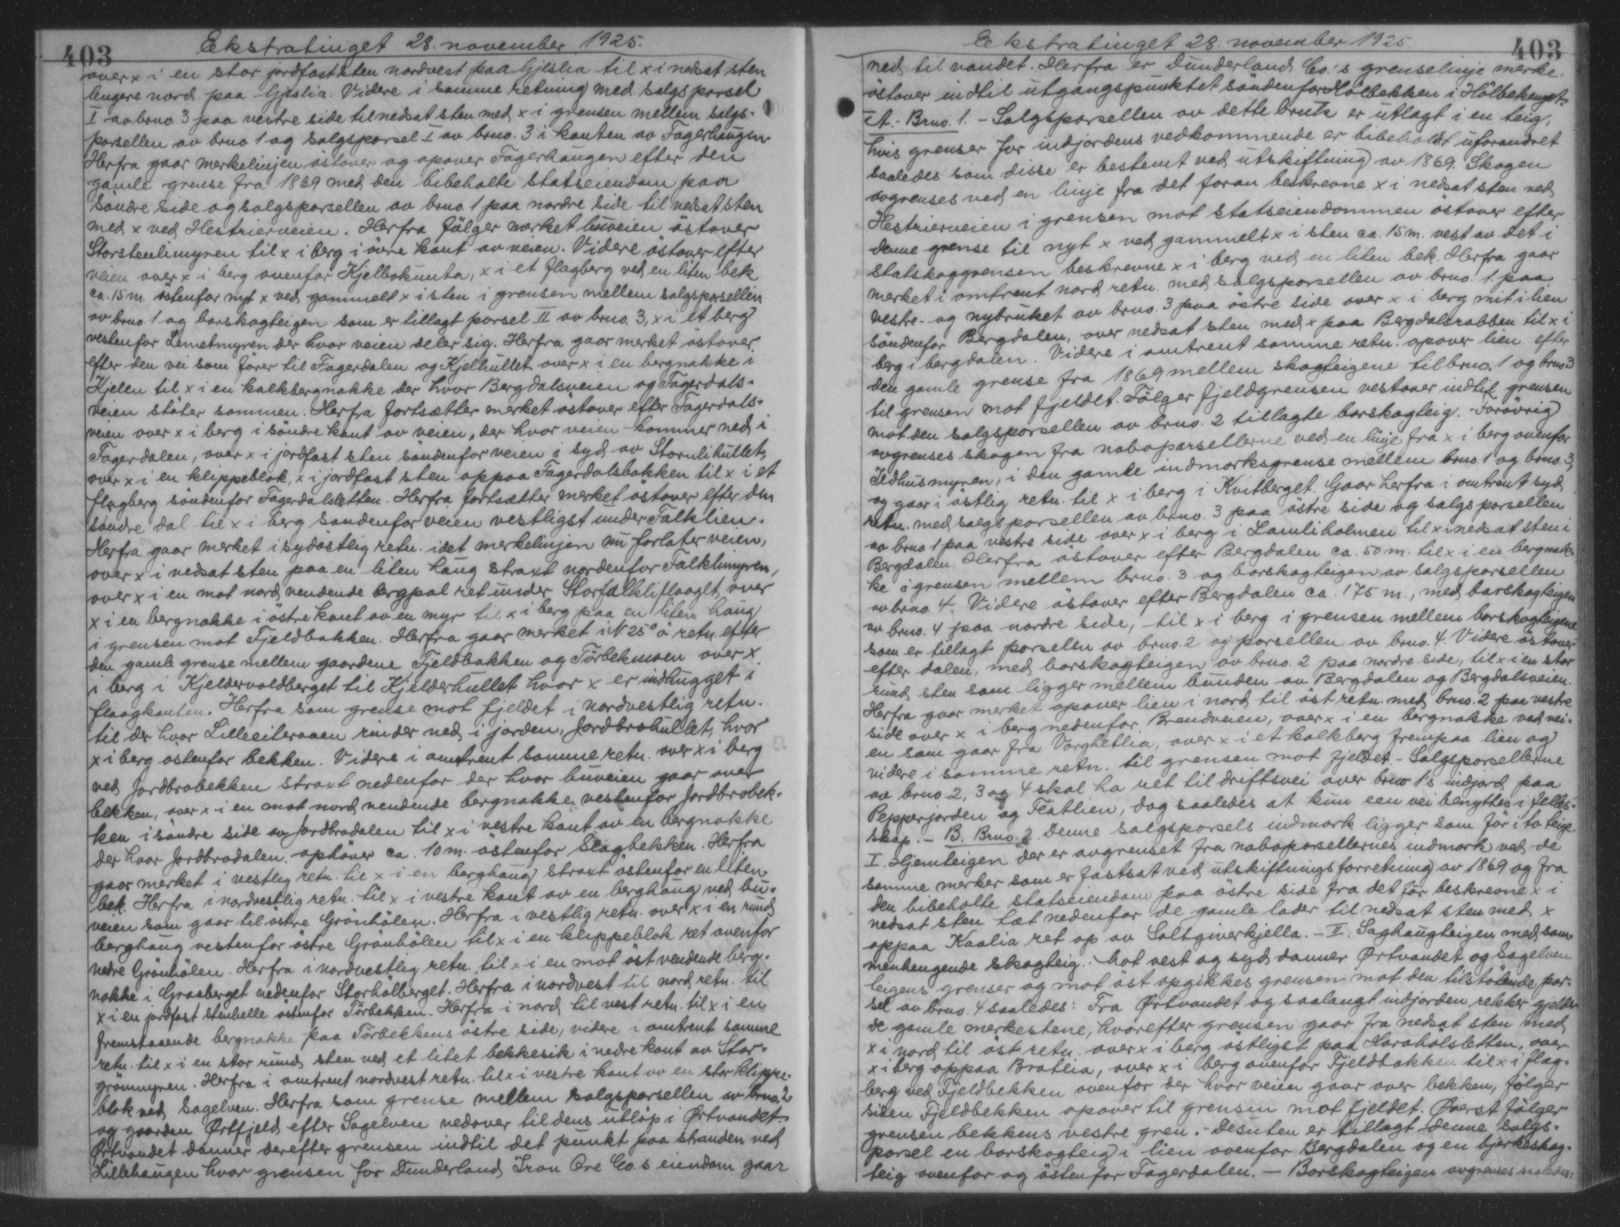 403
Ekstratinget 28. november 1925.
over x i en stor jordfast sten nordvest paa Gjeslia til x i nedsat sten
lengere nord paa Gjeslia. Videre i samme retning med salgsparsel
I av brno 3 paa vestre side til nedsat sten med x i grensen mellem salgs-
parsellen av brno 1 og salgsparsel I av brno. 3 i kanten av Fagerhaugen.
Herfra gaar merkelinjen østover og opover Fagerhaugen efter den
gamle grense fra 1869 med den bibeholte statseiendom paa
søndre side og salgsparsellen av brno 1 paa nordre side til nedsat sten
med x ved Hestrierveien. Herfra følger merket buveien østover
Storstenlimyren til x i berg i øvre kant av veien. Videre østover efter
veien over x i berg ovenfor Kjelboknuta, x i et flagberg ved en liten bek
ca. 15 m. østenfor nyt x ved gammelt x i sten i grensen mellem salgsparsellen
av brno 1 og barskogteigen som er tillagt parsel II av brno. 3, x i et berg
vestenfor Lemetmyren der hvor veien deler sig. Herfra gaar merket østover
efter den vei som fører til Fagerdalen og Kjelhullet over x i en bergnakke i
Kjelen til x i en kalksbergnakke der hvor Bergdalsveien og Fagerdals-
veien støter sammen. Herfra fortsætter merket østover efter Fagerdals-
veien over x i berg i søndre kant av veien, der hvor veien kommer ned i
Fagerdalen, over x i jordfast sten søndenfor veien i syd av Stornlihullet,
over x i en klippeblok, x i jordfast sten oppaa Fagerdalsbakken til x i et
flagberg søndenfor Fagerdalsletten. Herfra fortsætter merket østover efter den
søndre dal til x i berg søndenfor veien vestligst under Falklien.
Herfra gaar merket i sydøstlig retn. idet merkelinjen nu forlater veien,
over x i nedsat sten paa en liten haug straxt nordenfor Falklimyren,
over x i en mot nord vendende bergpal ret under Storfalkliflaaget, over
x i en bergnakke i østre kant av en myr til x i berg paa en liten haug
i grensen mot Fjeldbakken. Herfra gaar merket i N 25° ø retn. efter
den gamle grense mellem gaardene Fjeldbakken og Tørbekmoen over x
i berg i Kjeldervoldberget til Kjelderhullet hvor x er indhugget i
flaagkanten. Herfra som grense mot fjeldet i nordvestlig retn.
til der hvor Lilleeiteraaen rinder ned i jorden, Jordbrohullet, hvor
x i berg østenfor bekken. Videre i omtrent samme retn. over x i berg
ved Jordbrobekken straxt nedenfor der hvor buveien gaar over
bekken, over x i en mot nord vendende bergnakke vestenfor Jordbrobek-
ken i søndre side av Jordbrodalen til x i vestre kant av en bergnakke
der hvor Jordbrodalen ophøver ca. 10 m. østenfor Slagbekken. Herfra
gaar merket i vestlig retn. til x i en berghaug straxt østenfor en liten
bek. Herfra i nordvestlig retn. til x i vestre kant av en berghaug ved bu-
veien som gaar til østre Grønhølen. Herfra i vestlig retn. over x i en rund
berghaug vestenfor østre Grønhølen til x i en klippeblok ret ovenfor
nedre Grønhølen. Herfra i nordvestlig retn. til x i en mot øst vendende berg-
nakke i Graaberget nedenfor Storhølberget. Herfra i nordvest til nord retn. til
x i en jordfast stenhelle østenfor Tørbekken. Herfra i nord til vest retn. til x i en
fremstaaende bergnakke paa Tørbekkens østre side, videre i omtrent samme
retn. til x i en stor rund sten ved et litet bekkesik i nedre kant av Stor-
grønmyren. Herfra i omtrent nordvest retn. til x i vestre kant av en stor klippe-
blok ved Sagelven. Herfra som grense mellem salgsparsellen av brno. 2
og gaarden Ørtfjeld efter Sagelven nedover til dens utløp i Ørtvandet.
Ørtvandet danner derefter grensen indtil det punkt paa stranden ved
Lillehaugen hvor grensen for Dunderland Iron Ore Co.s eiendom gaar
Ekstratinget 28. november 1925.
403
ned til vandet. Herfra er Dunderland Co.'s grenselinje merke
østover indtil utgangspunktet søndenfor Hølbekken i Hølbekenget.
A. - Brno. 1. - Salgsparsellen av dette bruk er utlagt i en teig,
hvis grenser for indjordens vedkommende er bibeholdt uforandret
saaledes som disse er bestemt ved utskiftning av 1869. Skogen
avgrenses ved en linje fra det foran beskrevne x i nedsat sten ved
Hestrierveien i grensen mot statseiendommen østover efter
denne grense til nyt x ved gammelt x i sten ca. 15 m. vest av det i
statskoggrensen beskrevne x i berg ved en liten bek. Herfra gaar
merket i omtrent nord retn. med salgsparsellen av brno. 1 paa
vestre- og nybruket av brno. 3 paa østre side over x i berg mit i lien
søndenfor Bergdalen, over nedsat sten med x paa Bergdalsrabben til x i
berg i bergdalen. Videre i omtrent samme retn. opover lien efter
den gamle grense fra 1869 mellem skogteigene til brno. 1 og brno 3
til grensen mot fjeldet. Følger fjeldgrensen vestover indtil grensen
mot den salgsparsellen av brno. 2 tillagte barskogteig. - Forøvrig
avgrenses skogen fra naboparsellerne ved en linje fra x i berg ovenfor
Ildhusmyren, i den gamle indmarksgrense mellem brno. 1 og brno. 3,
og gaar i østlig retn. til x i berg i Kvitberget. Gaar herfra i omtrent syd
retn. med salgsparsellen av brno. 3 paa østre side og salgsparsellen
av brno 1 paa vestre side over x i berg i Lamliholmen til x i nedsat sten i
Bergdalen. Herfra østover efter Bergdalen ca. 50 m. til x i en bergnak-
ke i grensen mellem brno. 3 og barskogteigen av salgsparsellen
av brno 4. Videre østover efter Bergdalen ca. 175 m., med barskogteigen
av brno. 4 paa nordre side, til x i berg i grensen mellem barskogteigene
som er tillagt parsellen av brno. 2 og parsellen av brno. 4. Videre østover
efter dalen, med barskogteigen av brno. 2 paa nordre side, til x i en stor
rund sten som ligger mellem bunden av Bergdalen og Bergdalsveien.
Herfra gaar merket opover lien i nord til øst retn. med brno. 2 paa vestre
side over x i berg nedenfor Brendveien, over x i en bergnakke ved vei-
en som gaar fra Vørghetlia, over x i et kalkberg frempaa lien og
videre i samme retn. til grensen mot fjeldet. - Salgsparsellerne
av brno 2, 3 og 4 skal ha ret til driftsvei over brno 1's indjord paa
Pepperjorden og Teatlien, dog saaledes at kun een vei benyttes i felles-
skap. - B. Brno. 2. Denne salgsparsels indmark ligger som før i to teige.
I. Hjemteigen der er avgrenset fra naboparsellernes indmark ved de
samme merker som er fastsat ved utskiftningsforretning av 1869 og fra
den bibeholte statseiendom paa østre side fra det før beskrevne x i
nedsat sten tæt nedenfor de gamle lader til nedsat sten med x
oppaa Kaalia ret op av Saltgiverkjella. - II. Saghaugteigen med sam-
menhengende skogteig. Mot vest og syd danner Ørtvandet og Sagelven
teigens grenser og mot øst opgikkes grensen mot den tilstøtende par-
sel av brno. 4 saaledes: Fra Ørtvandet og saalangt indjorden rekker gjelder
de gamle merkestene, hvorefter grensen gaar fra nedsat sten med
x i nord til øst retn. over x i berg østligst paa Haraholsletten, over
x i berg oppaa Bratlia, over x i berg ovenfor Fjeldbakken til x i flag-
berg ved Fjeldbekken ovenfor der hvor veien gaar over bekken, følger
siden Fjeldbekken opover til grensen mot fjeldet. Øverst følger
grensen bekkens vestre gren. - Desuten er tillagt denne salgs-
parsel en barskogteig i lien ovenfor Bergdalen og en bjerkeskog-
teig ovenfor og østenfor Fagerdalen. - Barskogteigen avgrenses saaledes: